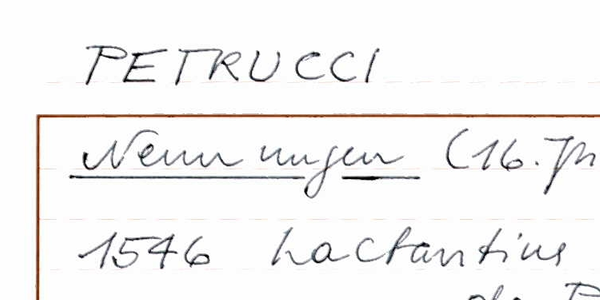 PETRUCCI
Nennungen (16. Jh
1546 Lactantius
de P